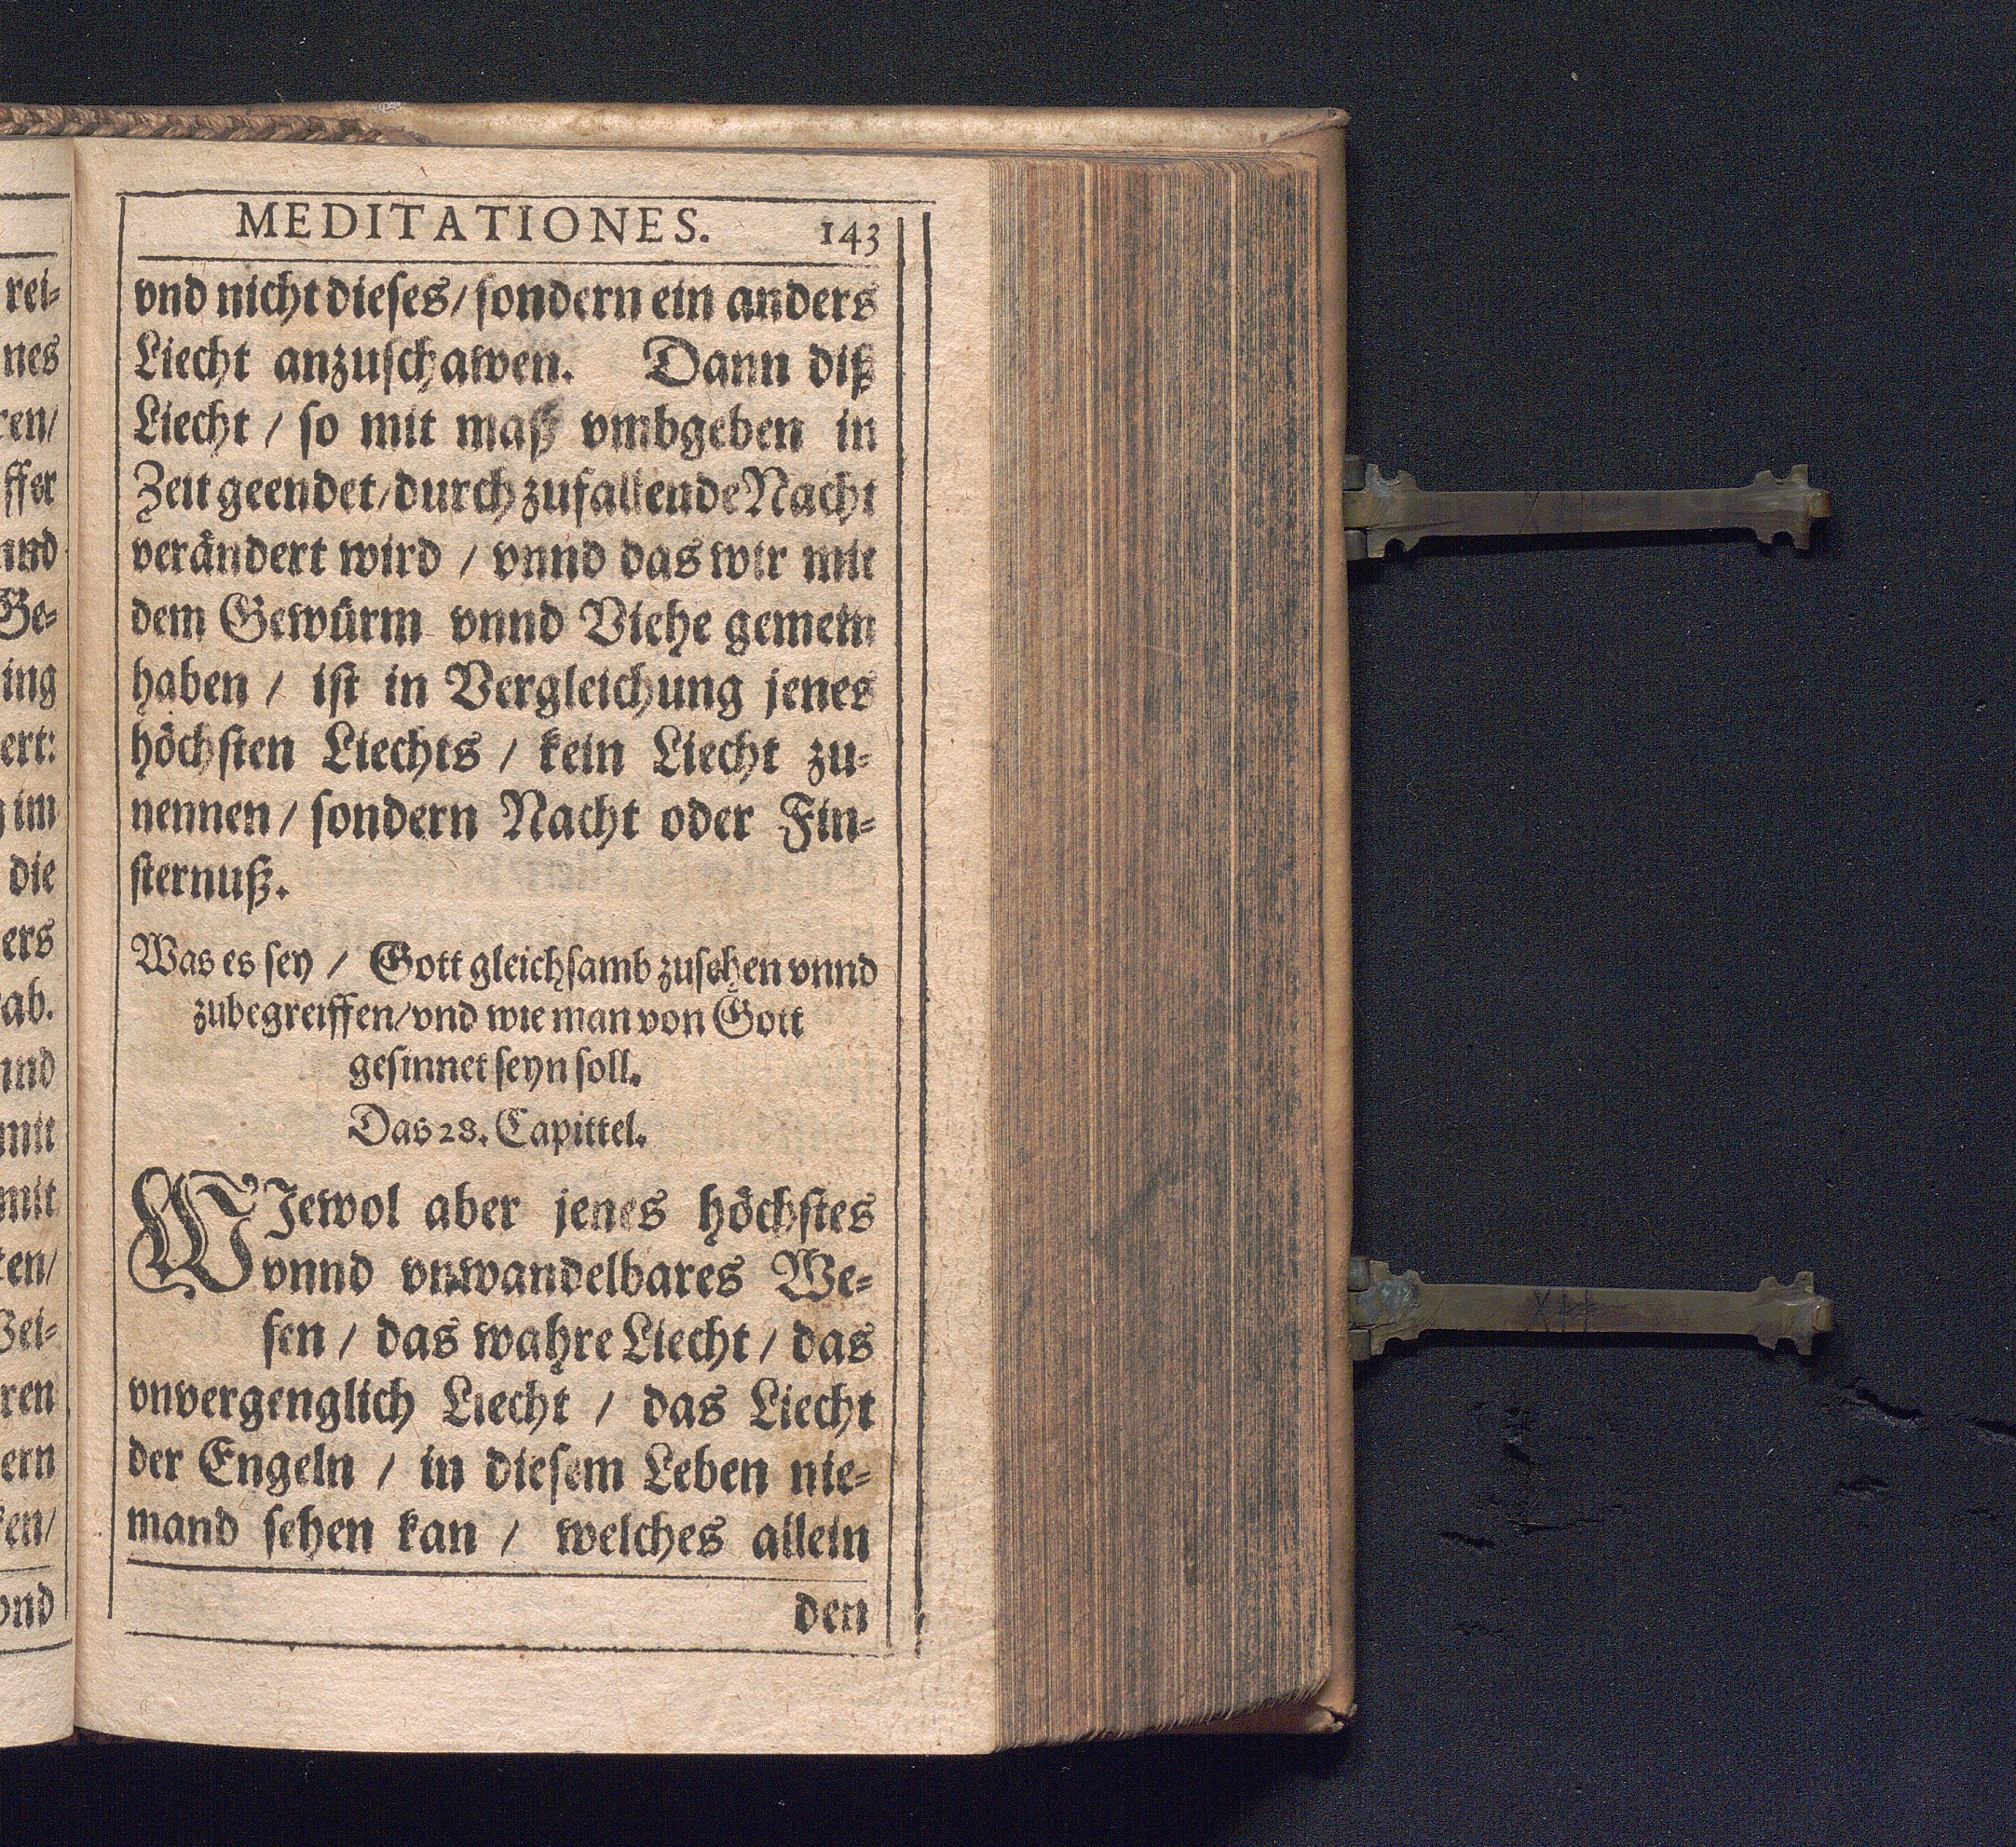 MEDITATIONES. 143
vnd nicht dieses/ sondern ein anders
Liecht anzuschawen. Dann diß
Liecht / so mit maß vmbgeben in
Zeit geendet/durch zufallende Nacht
verändert wird / vnnd das wir mit
dem Gewürm vnnd Viehe gemein
haben / ist in Vergleichung jenes
höchsten Liechts / kein Liecht zu-
nennen / sondern Nacht oder Fin-
sternuß.
Was es sey / Gott gleichsamb zusehen vnnd
zubegreiffen/vnd wie man von Gott
gesinnet seyn soll.
Das 28. Capittel.
WJewol aber jenes höchstes
vnnd vnwandelbares We-
sen / das wahre Liecht / das
vnvergenglich Liecht / das Liecht
der Engeln / in diesem Leben nie-
mand sehen kan / welches allein
den